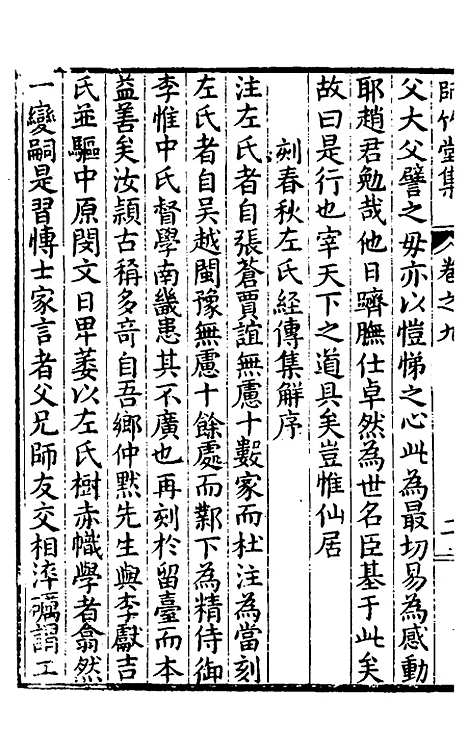 師竹堂集 卷之九 二二
父大父譬之毋亦以愷悌之心此為最切易為感動
耶趙君勉哉他日躋膴仕卓然為世名臣基于此矣
故曰是行也宰天下之道具矣豈惟仙居
刻春秋左氏經傳集解序
注左氏者自張蒼賈誼無慮十數家而杜注為當刻
左氏者自吳越閩豫無慮十餘處而鄴下為精侍御
李惟中氏督學南畿患其不廣也再刻於留臺而本
益善矣汝頴古稱多奇自吾鄉仲默先生與李獻吉
氏並驅中原閔文日卑萎以左氏樹赤幟學者翕然
一變嗣是習博士家言者父兄師友交相淬礪謂工